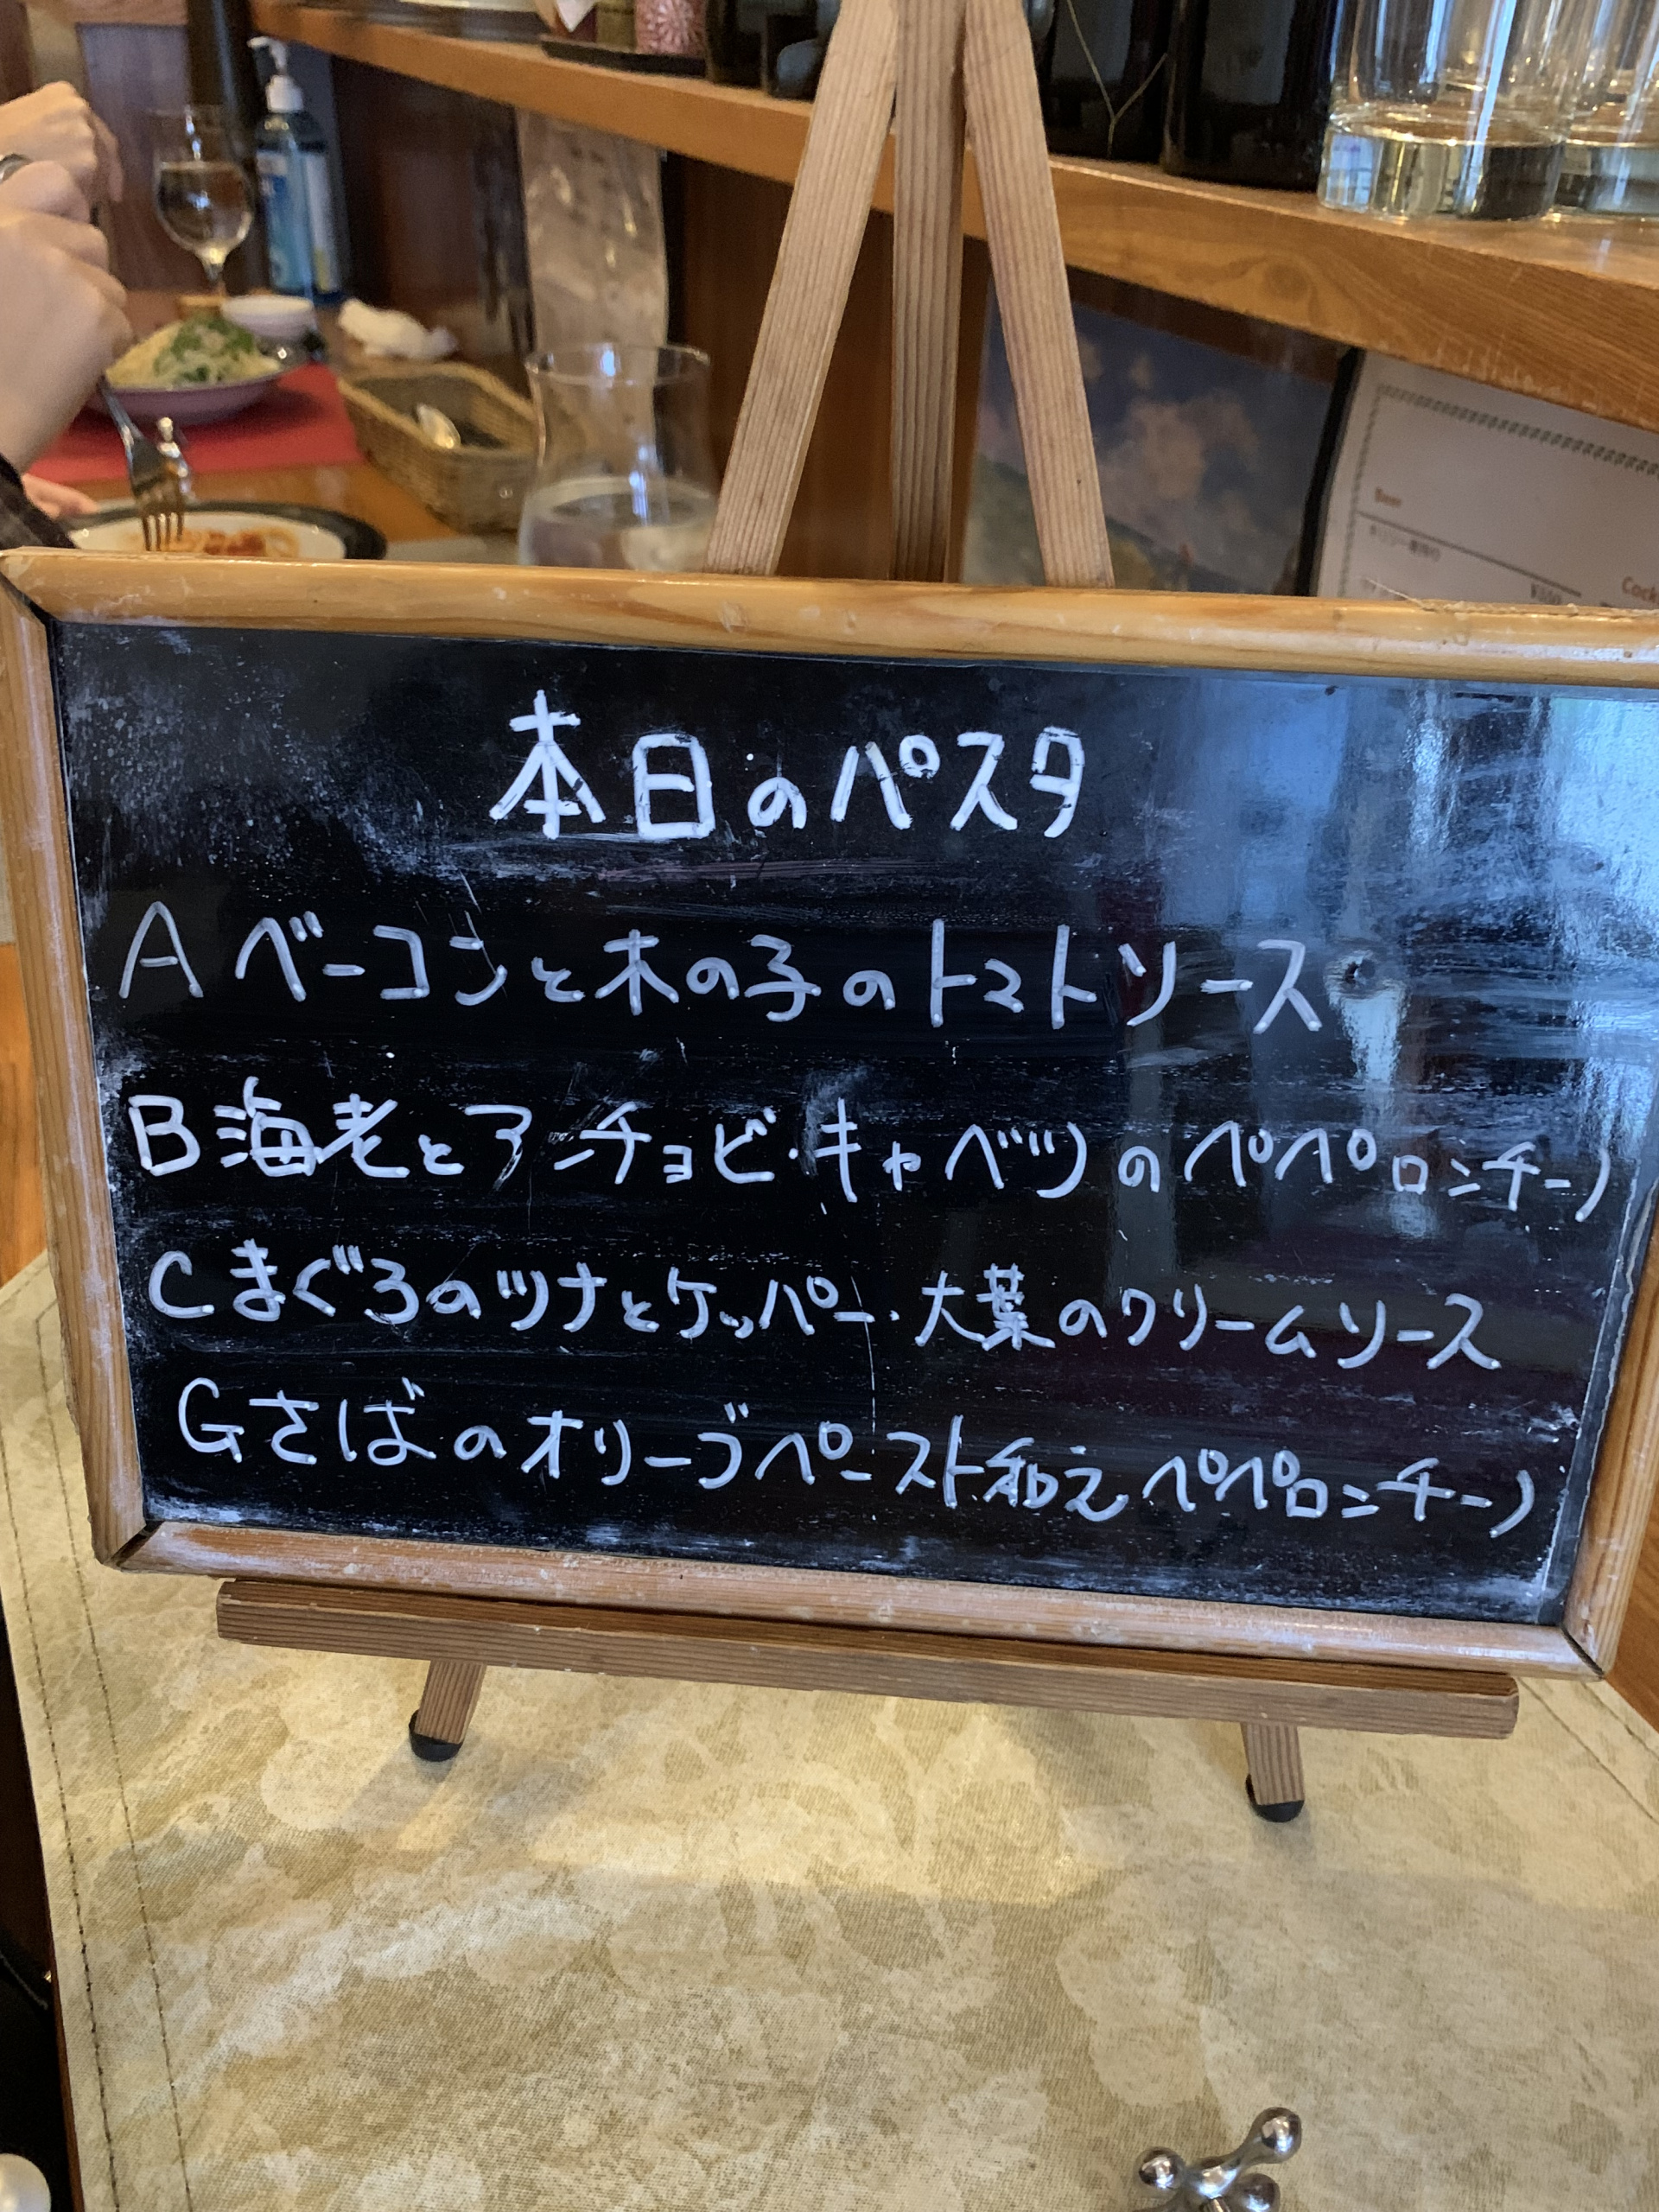 Beer
本日のパスタ
A ベーコンと木の子のトマトソース
B 海老とアンチョビ・キャベツのペペロンチーノ
C まぐろのツナとケッパー・大葉のクリームソース
G さばのオリーブペースト和え ペペロンチーノ